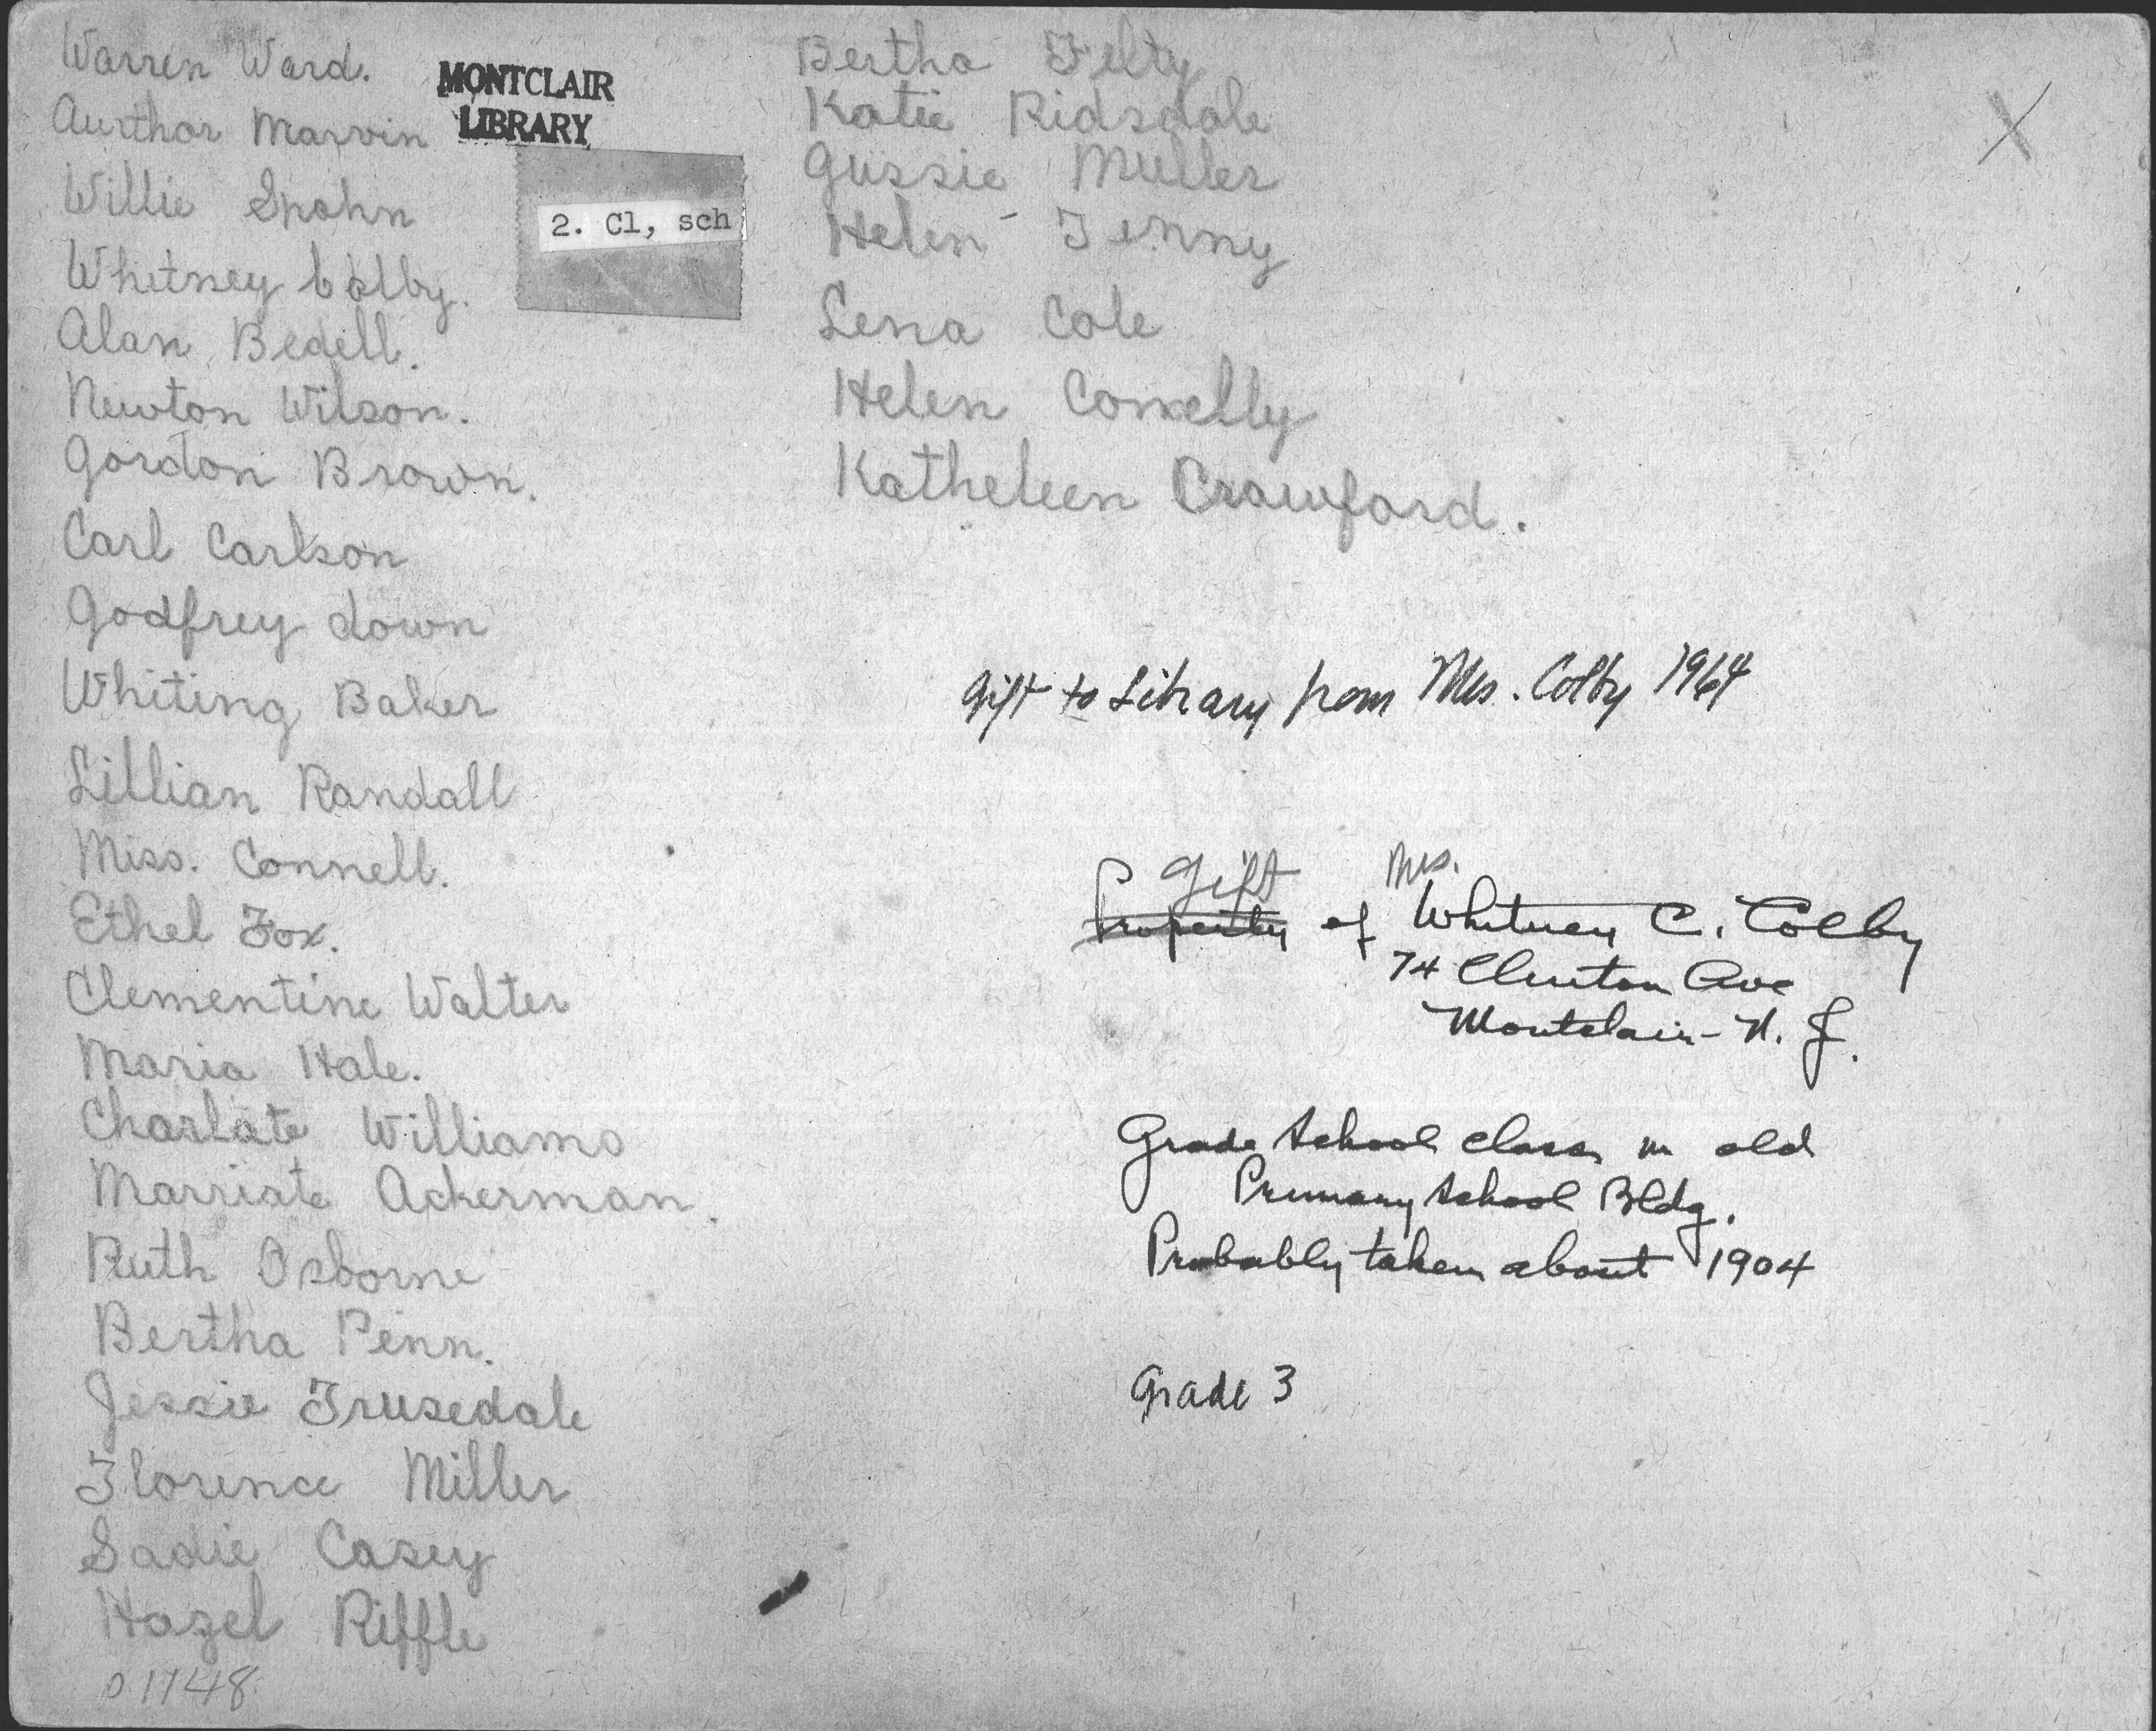 Warren Ward.
Aurthor Marvin
Willie Spahn
Whitney Colby.
Alan Bedell.
Newton Wilson.
Gordon Brown.
Carl Carlson
Godfrey down
Whiting Baker
Lillian Randall
Miss. Connell.
Ethel Fox.
Clementine Walter
Maria Hale.
Charlate Williams
Marriate Ackerman.
Ruth Osborne
Bertha Penn.
Jessie Trusedale
Florence Miller
Sadie Casey
Hazel Riffle
0.1748
MONTCLAIR
LIBRARY
2. Cl, sch
Bertha Felty
Katie Ridsdale
Gussie Muller
Helen Tenny
Lena Cole
Helen Connelly
Katheleen Crawford.
X
Gift to Library from Mrs. Colby 1964
Gift Mrs.
Property of Whitney C. Colby
74 Clinton Ave
Montclair - N. J.
Grade School class in old
Primary School Bldg.
Probably taken about 1904
Grade 3